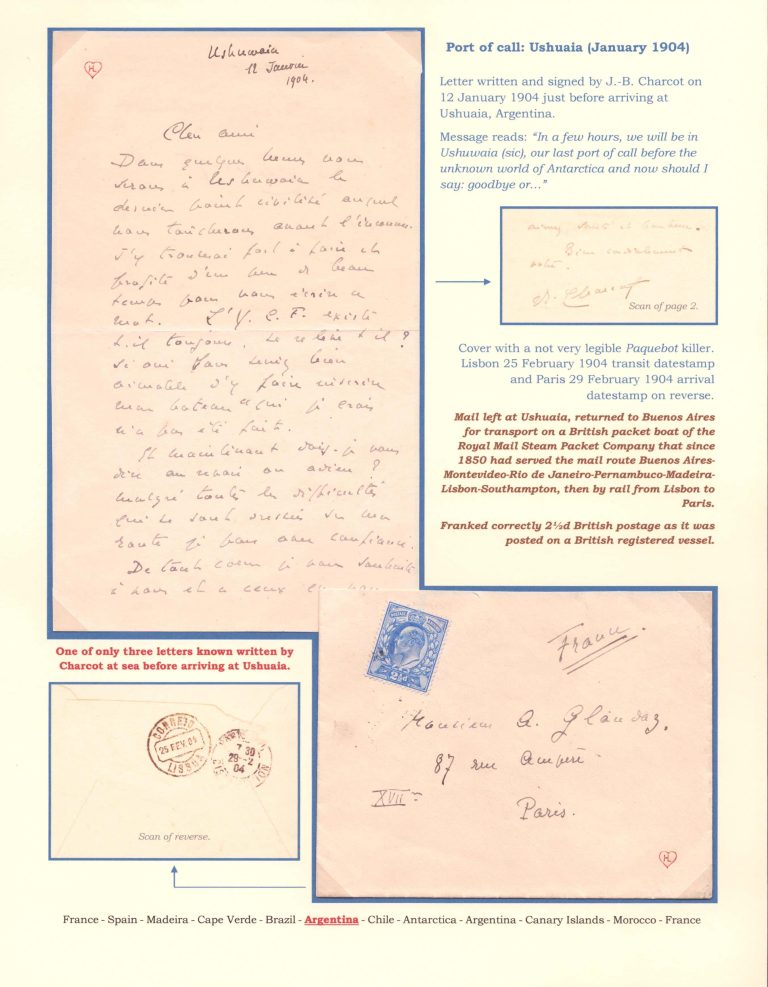 Ushuwaia
12 Janvier
1904.
Cher ami
Dans quelques heures nous
serons à Ushuwaia le
dernier point civilisé auquel
nous toucherons avant l'inconnu.
J'y trouverai fort à faire et
profite d'un peu de beau
temps pour vous écrire un
mot. L'Y. C. F. existe
t.il toujours, se relève t il?
Si oui vous seriez bien
aimable d'y faire inscrire
mon bateau qui je crois
n'a pas été fait.
Et maintenant dois-je vous
dire au revoir ou adieu?
malgré toutes les difficultés
qui se sont dressées sur ma
route j'y pars avec confiance.
De tout coeur je vous souhaite
à vous et à ceux
Port of call: Ushuaia (January 1904)
Letter written and signed by J.-B. Charcot on
12 January 1904 just before arriving at
Ushuaia, Argentina.
Message reads: “In a few hours, we will be in
Ushuwaia (sic), our last port of call before the
unknown world of Antarctica and now should I
say: goodbye or…”
santé et bonheur.
Bien cordialement
votre.
Charcot
Scan of page 2.
Cover with a not very legible Paquebot killer.
Lisbon 25 February 1904 transit datestamp
and Paris 29 February 1904 arrival
datestamp on reverse.
Mail left at Ushuaia, returned to Buenos Aires
for transport on a British packet boat of the
Royal Mail Steam Packet Company that since
1850 had served the mail route Buenos Aires-
Montevideo-Rio de Janeiro-Pernambuco-Madeira-
Lisbon-Southampton, then by rail from Lisbon to
Paris.
Franked correctly 2½d British postage as it was
posted on a British registered vessel.
One of only three letters known written by
Charcot at sea before arriving at Ushuaia.
CORREIO
25 FEV. 04
LISBOA
7 30
29 -2
04
Scan of reverse.
2½d
France.
Monsieur A. Glandaz.
87 rue Ampère
XVIIe
Paris.
France - Spain - Madeira - Cape Verde - Brazil - Argentina - Chile - Antarctica - Argentina - Canary Islands - Morocco - France